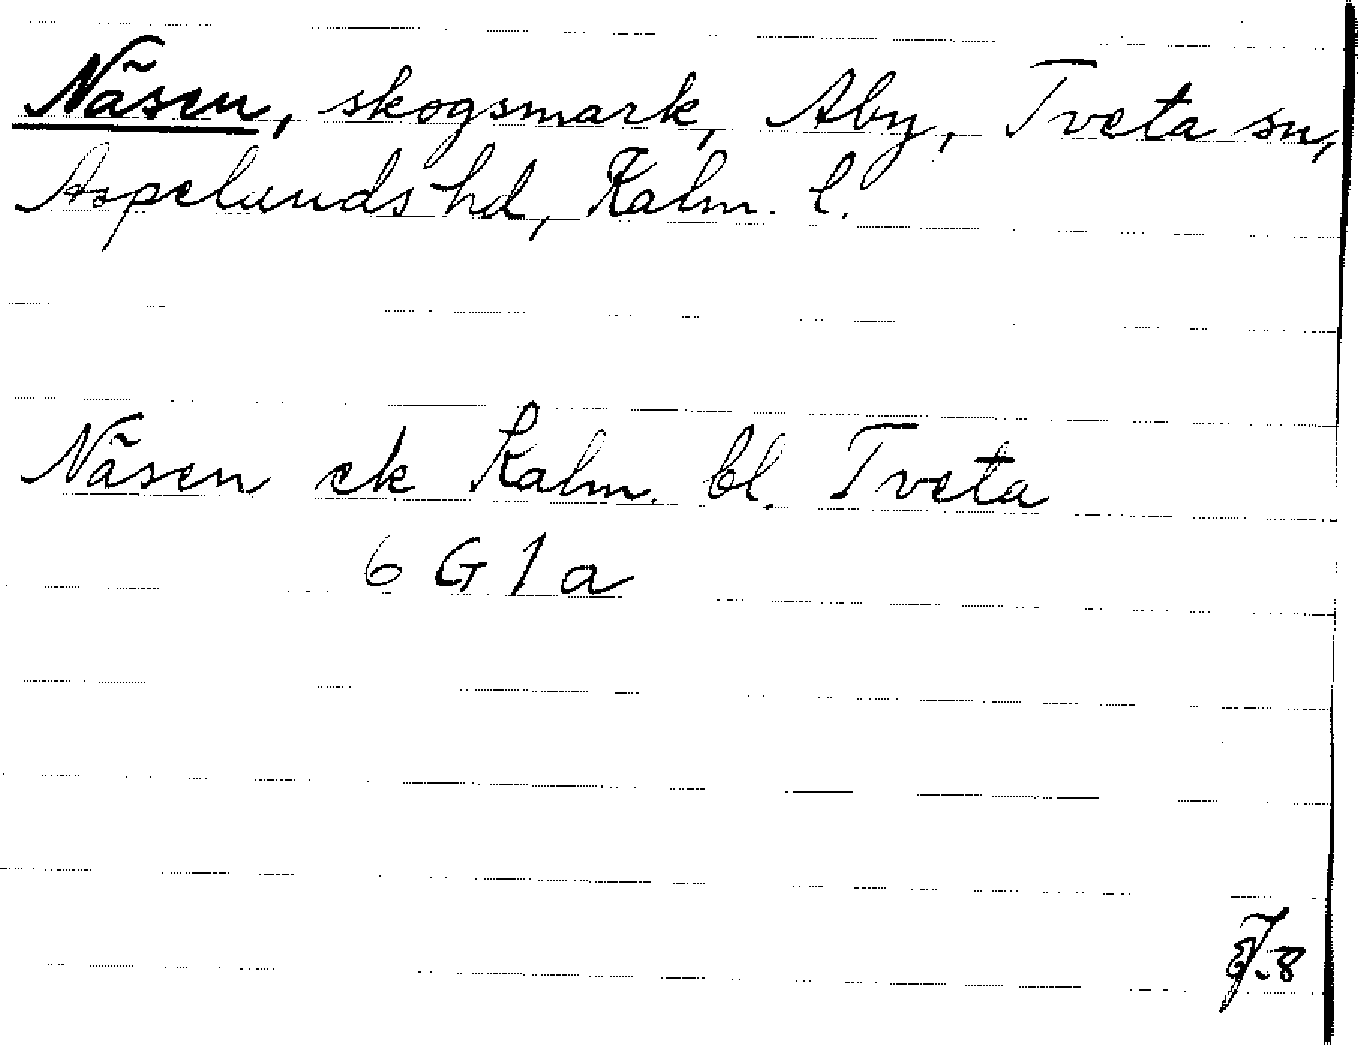 Näsen, skogsmark, Aby, Tveta sn,
Aspelands hd, Kalm. l.
Näsen ek Kalm. bl. Tveta
6 G 1 a